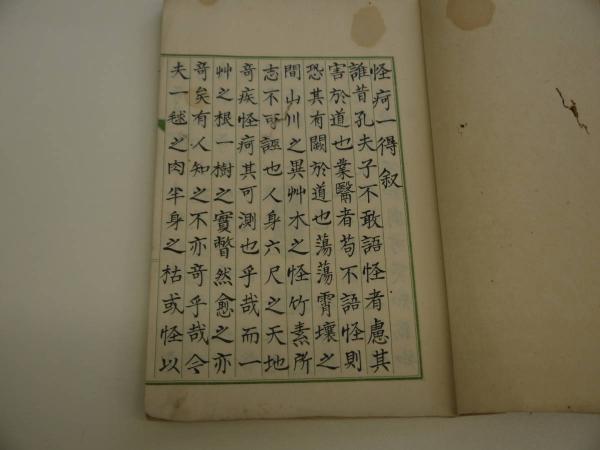 怪痾一得叙
誰昔孔夫子不敢語怪者慮其
害於道也業醫者苟不語怪則
恐其有闕於道也蕩蕩霄壤之
間山川之異艸木之怪竹素所
志不可誣也人身六尺之天地
奇疾怪痾其可測也乎哉而一
艸之根一樹之實瞥然愈之亦
奇矣有人知之不亦奇乎哉今
夫一毬之肉半身之枯或怪以